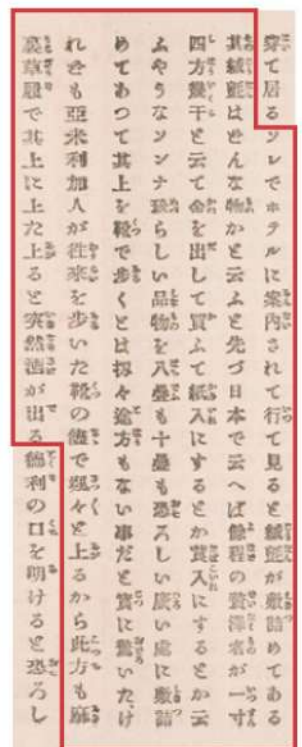 穿て居るソレでホテルに案内されて行て見ると絨氈が敷詰めてある
其絨氈はどんな物かと云ふと先づ日本で云へば餘程の贅澤者が一寸
四方幾干と云て金を出して買ふて紙入にするとか莨入にするとか云
ふやうなソンナ珍らしい品物を八疊も十疊も恐ろしい廣い處に敷詰
めてあつて其上を靴で歩くとは扨々途方もない事だと實に驚いた、け
れども亞米利加人が徃來を歩いた靴の儘で颯々と上るから此方も麻
裏草履で其上に上た上ると突然酒が出る徳利の口を明けると恐ろし